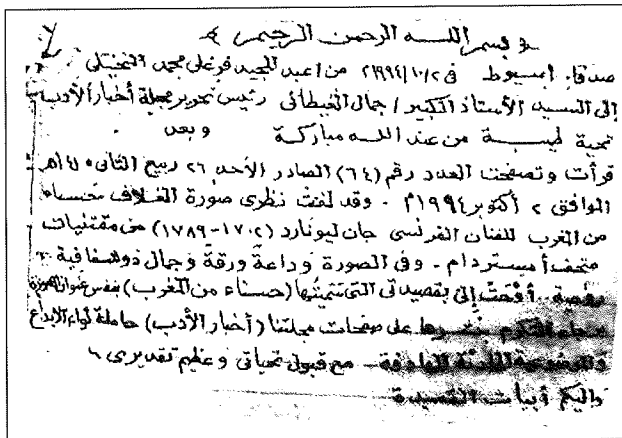 ﴿ بسم اللـــه الرحمن الرحيم ﴾
صدفا/ أسيوط في ٢/١٠/١٩٩٤م من/عبد المجيد فرغلي محمد النخيلي
إلى السيد الأستاذ الكبير/ جمال الغيطاني رئيس تحرير مجلة أخبار الأدب
تحية طيبـــة من عند اللـه مباركـة وبعد
قرأت وتصفحت العدد رقم (٦٤) الصادر الأحد ٢٦ ربيع الثاني
الموافق ٢ أكتوبر ١٩٩٤م - وقد لفت نظري صورة الغلاف حسناء
من المغرب للفنان الفرنسي جان ليونارد (١٧٠٢-١٧٨٩) من مقتنيات
متحف أمستردام - وفي الصورة وداعة ورقة وجمال ذو شفافية
إلى بقصيدتي التي (حسناء من المغرب) بنفس عنوان
على صفحات مجلتنا (أخبار الأدب) حاملة لواء الإبداع
مع قبول تحياتي وعظيم تقديري
وإليكم أبيات القصيدة